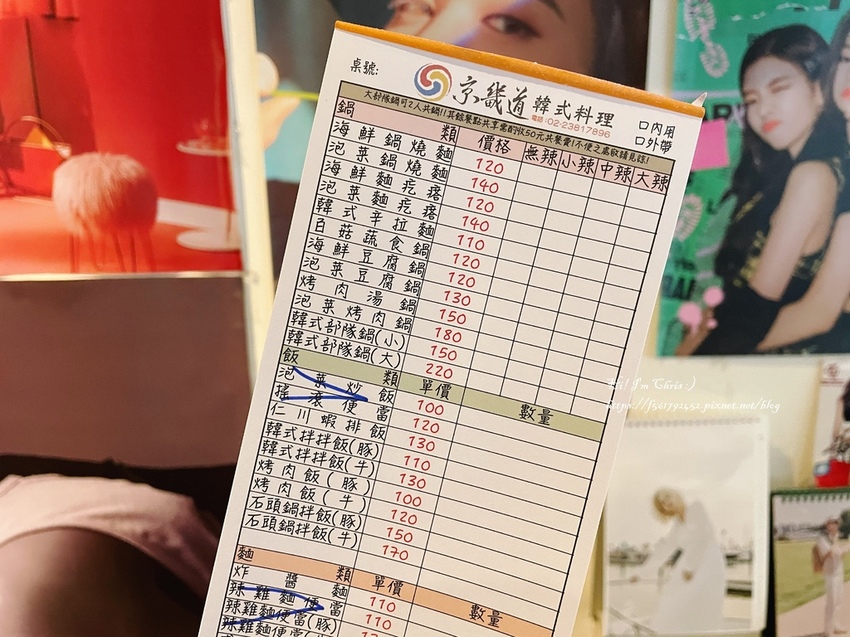 桌號:
京畿道 韓式料理
電話:02-23817896
口內用
口外帶
大部隊鍋可2人共鍋!!其餘餐點共享需酌收50元共餐費!不便之處敬請見諒!
鍋類 價格 無辣 小辣 中辣 大辣
海鮮鍋燒麵 120
泡菜鍋燒麵 140
海鮮麵疙瘩 120
泡菜麵疙瘩 140
韓式辛拉麵 110
百菇蔬食鍋 120
海鮮豆腐鍋 120
泡菜豆腐鍋 130
烤肉湯鍋 150
泡菜烤肉鍋 180
韓式部隊鍋(小) 150
韓式部隊鍋(大) 220
飯類 單價 數量
泡菜炒飯 100
搖滾便當 120
仁川蝦排飯 130
韓式拌拌飯(豚) 110
韓式拌拌飯(牛) 130
烤肉飯(豚) 100
烤肉飯(牛) 120
石頭鍋拌飯(豚) 150
石頭鍋拌飯(牛) 170
麵類 單價 數量
炸醬麵 110
辣雞麵便當 110
辣雞麵便當(豚)
辣雞麵便當
Hi! I'm Chris :)
https://f561792452.pixnet.net/blog